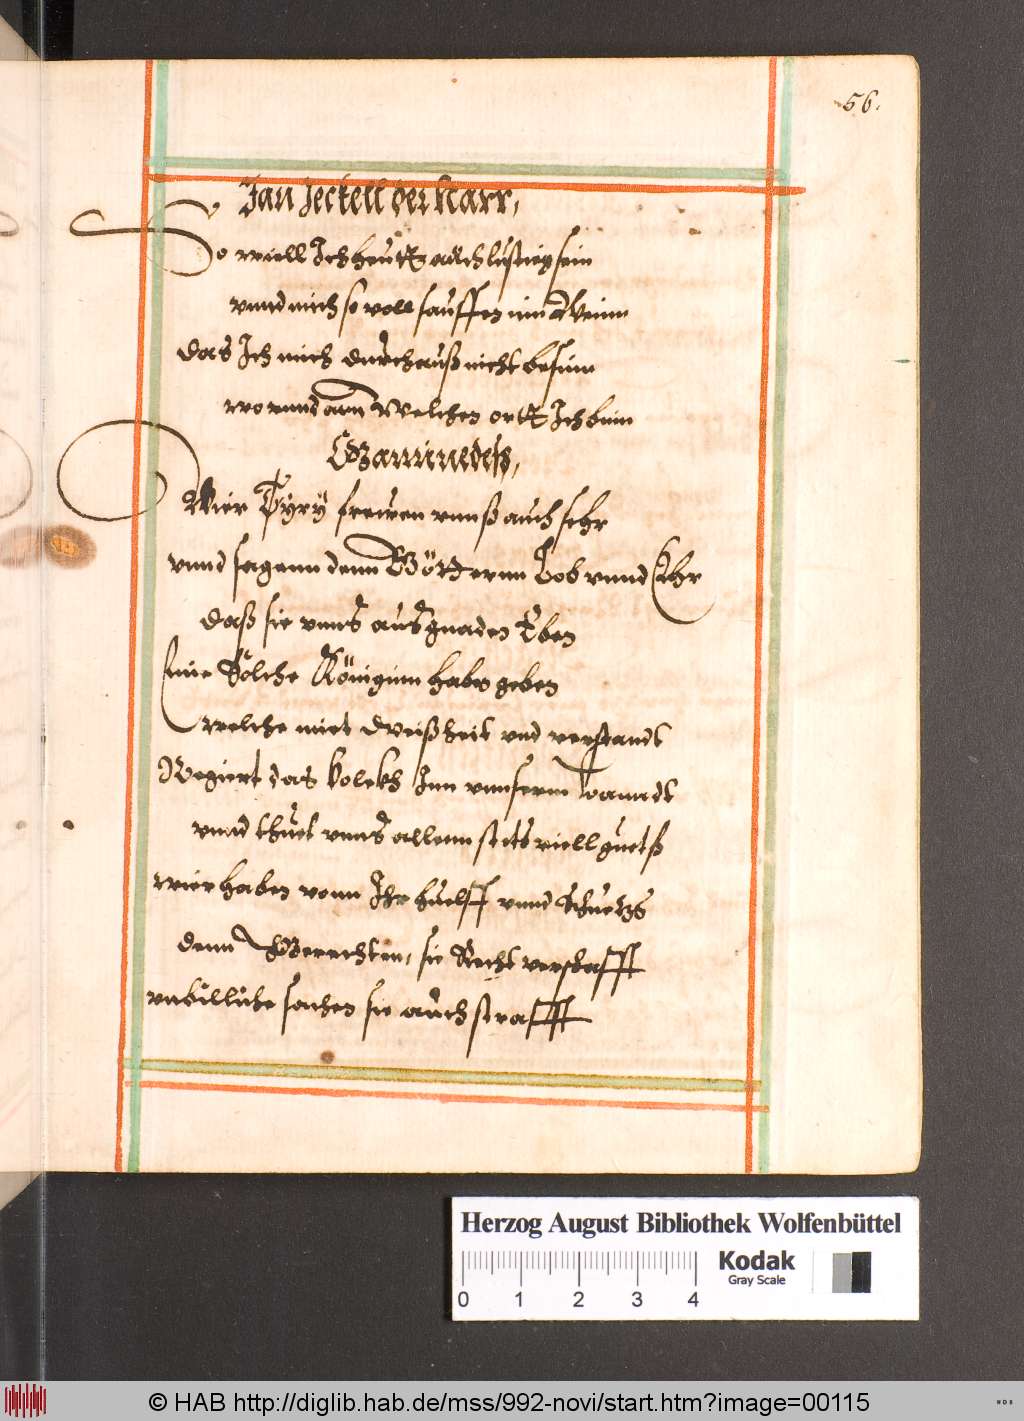 56.
Jan Jeckell der Narr,
So wiell Ich heutt auch lustieg sein
vnnd mich so voll sauffen im Wein
das Ich mich durchauß nicht besinn
wo vnnd ann Welchen ortt Ich binn
Ganimedeß,
Wier Tyry frewen vnnß auch sehr
vnnd sagenn denn Götternn Lob vnnd Ehr
daß sie vnns aus gnaden Eben
Eine Solche Königinn habn geben
welche miet Weißheit vnd verstandt
Regiert das volckh Inn vnnserm Lanndt
vnnd thuet vnns allenn stets viell guetß
wier haben vonn Ihr huelff vnnd Schuetzs
denn Gerechten, sie Recht verschafft
vnbilliche sachen sie auch strafft
Herzog August Bibliothek Wolfenbüttel
Kodak
Gray Scale
0 1 2 3 4
© HAB http://diglib.hab.de/mss/992-novi/start.htm?image=00115